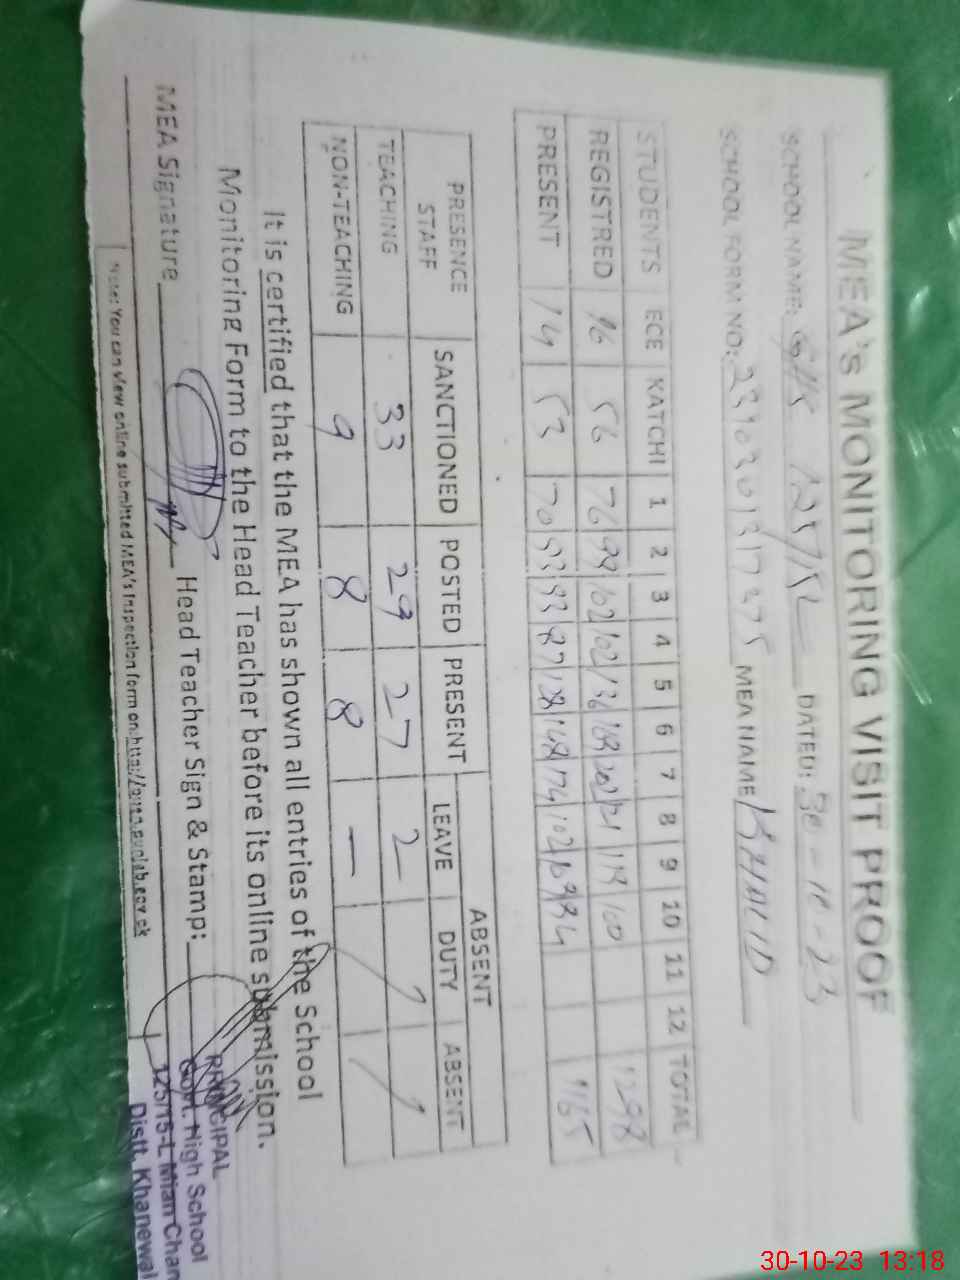 MEA's MONITORING VISIT PROOF
SCHOOL NAME: GHS 125/15L DATED: 30-10-23
SCHOOL FORM NO: MEA NAME KHALID
STUDENTS ECE KATCHI 1 2 3 4 5 6 7 8 9 10 11 12 TOTAL
REGISTRED 16 56 76 98 102 102 136 168 202 121 113 100 1298
PRESENT 14 53 70 93 93 87 128 148 174 102 1165
PRESENCE STAFF SANCTIONED POSTED PRESENT ABSENT
LEAVE DUTY ABSENT
TEACHING 33 29 27 2
NON-TEACHING 9 8 8 —
It is certified that the MEA has shown all entries of the School
Monitoring Form to the Head Teacher before its online submission.
MEA Signature Head Teacher Sign & Stamp:
PRINCIPAL
Govt. High School
125/15-L Mian Chan
Distt. Khanewal
Note: You can view online submitted MEA's Inspection form on:
30-10-23 13:18